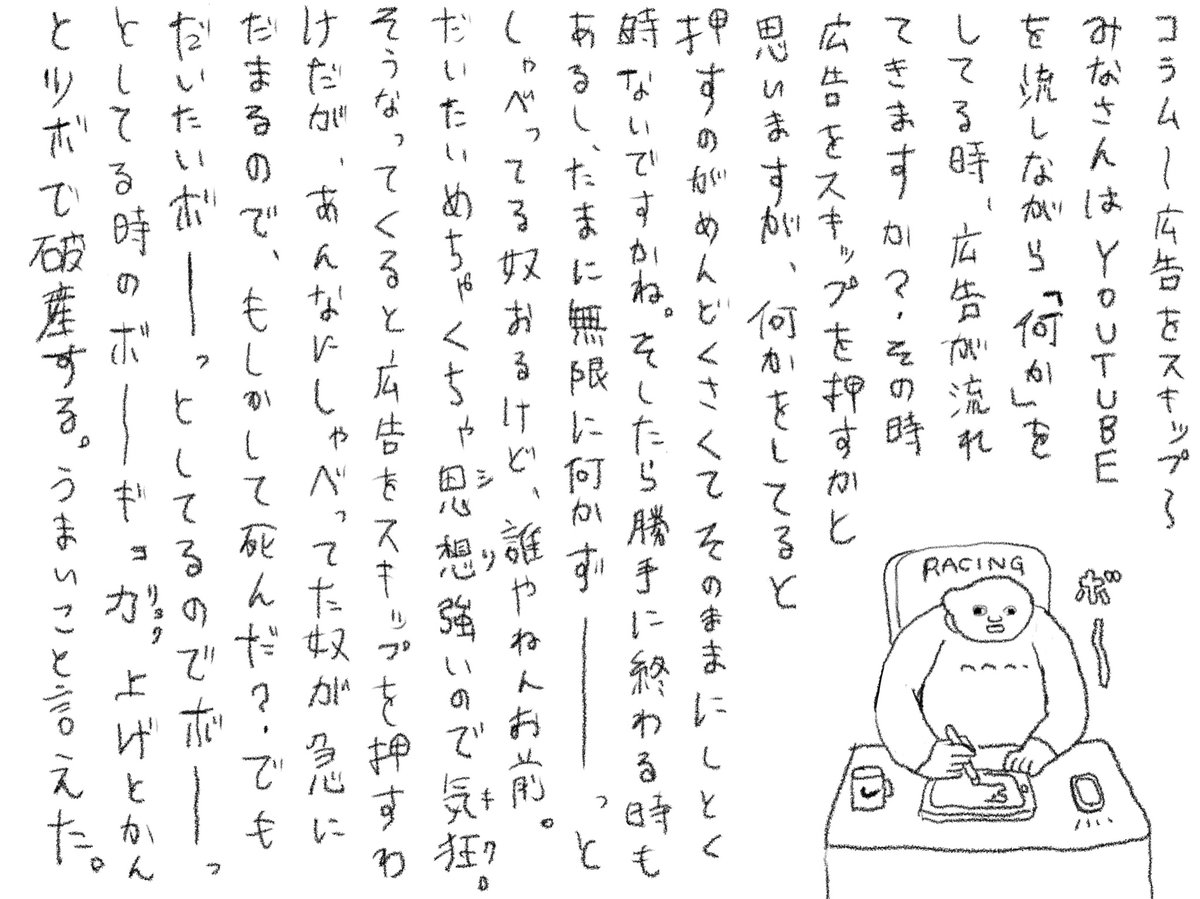 コラム〜広告をスキップ〜
みなさんはYOUTUBE
を流しながら「何か」を
してる時、広告が流れ
てきますか？.その時
広告をスキップを押すかと
思いますが、何かをしてると
押すのがめんどくさくてそのままにしとく
時ないですかね。そしたら勝手に終わる時も
あるし、たまに無限に何かずーーーっと
しゃべってる奴おるけど、誰やねんお前。
だいたいめちゃくちゃ思想強いので気狂。
シ リ
キ ク
そうなってくると広告をスキップを押すわ
けだが、あんなにしゃべってた奴が急に
だまるので、もしかして死んだ？.でも
だいたいボーーっとしてるのでボーーっ
としてる時のボーーギョガ上げとかん
リョク
とツボで破産する。うまいこと言えた。
RACING
ボー